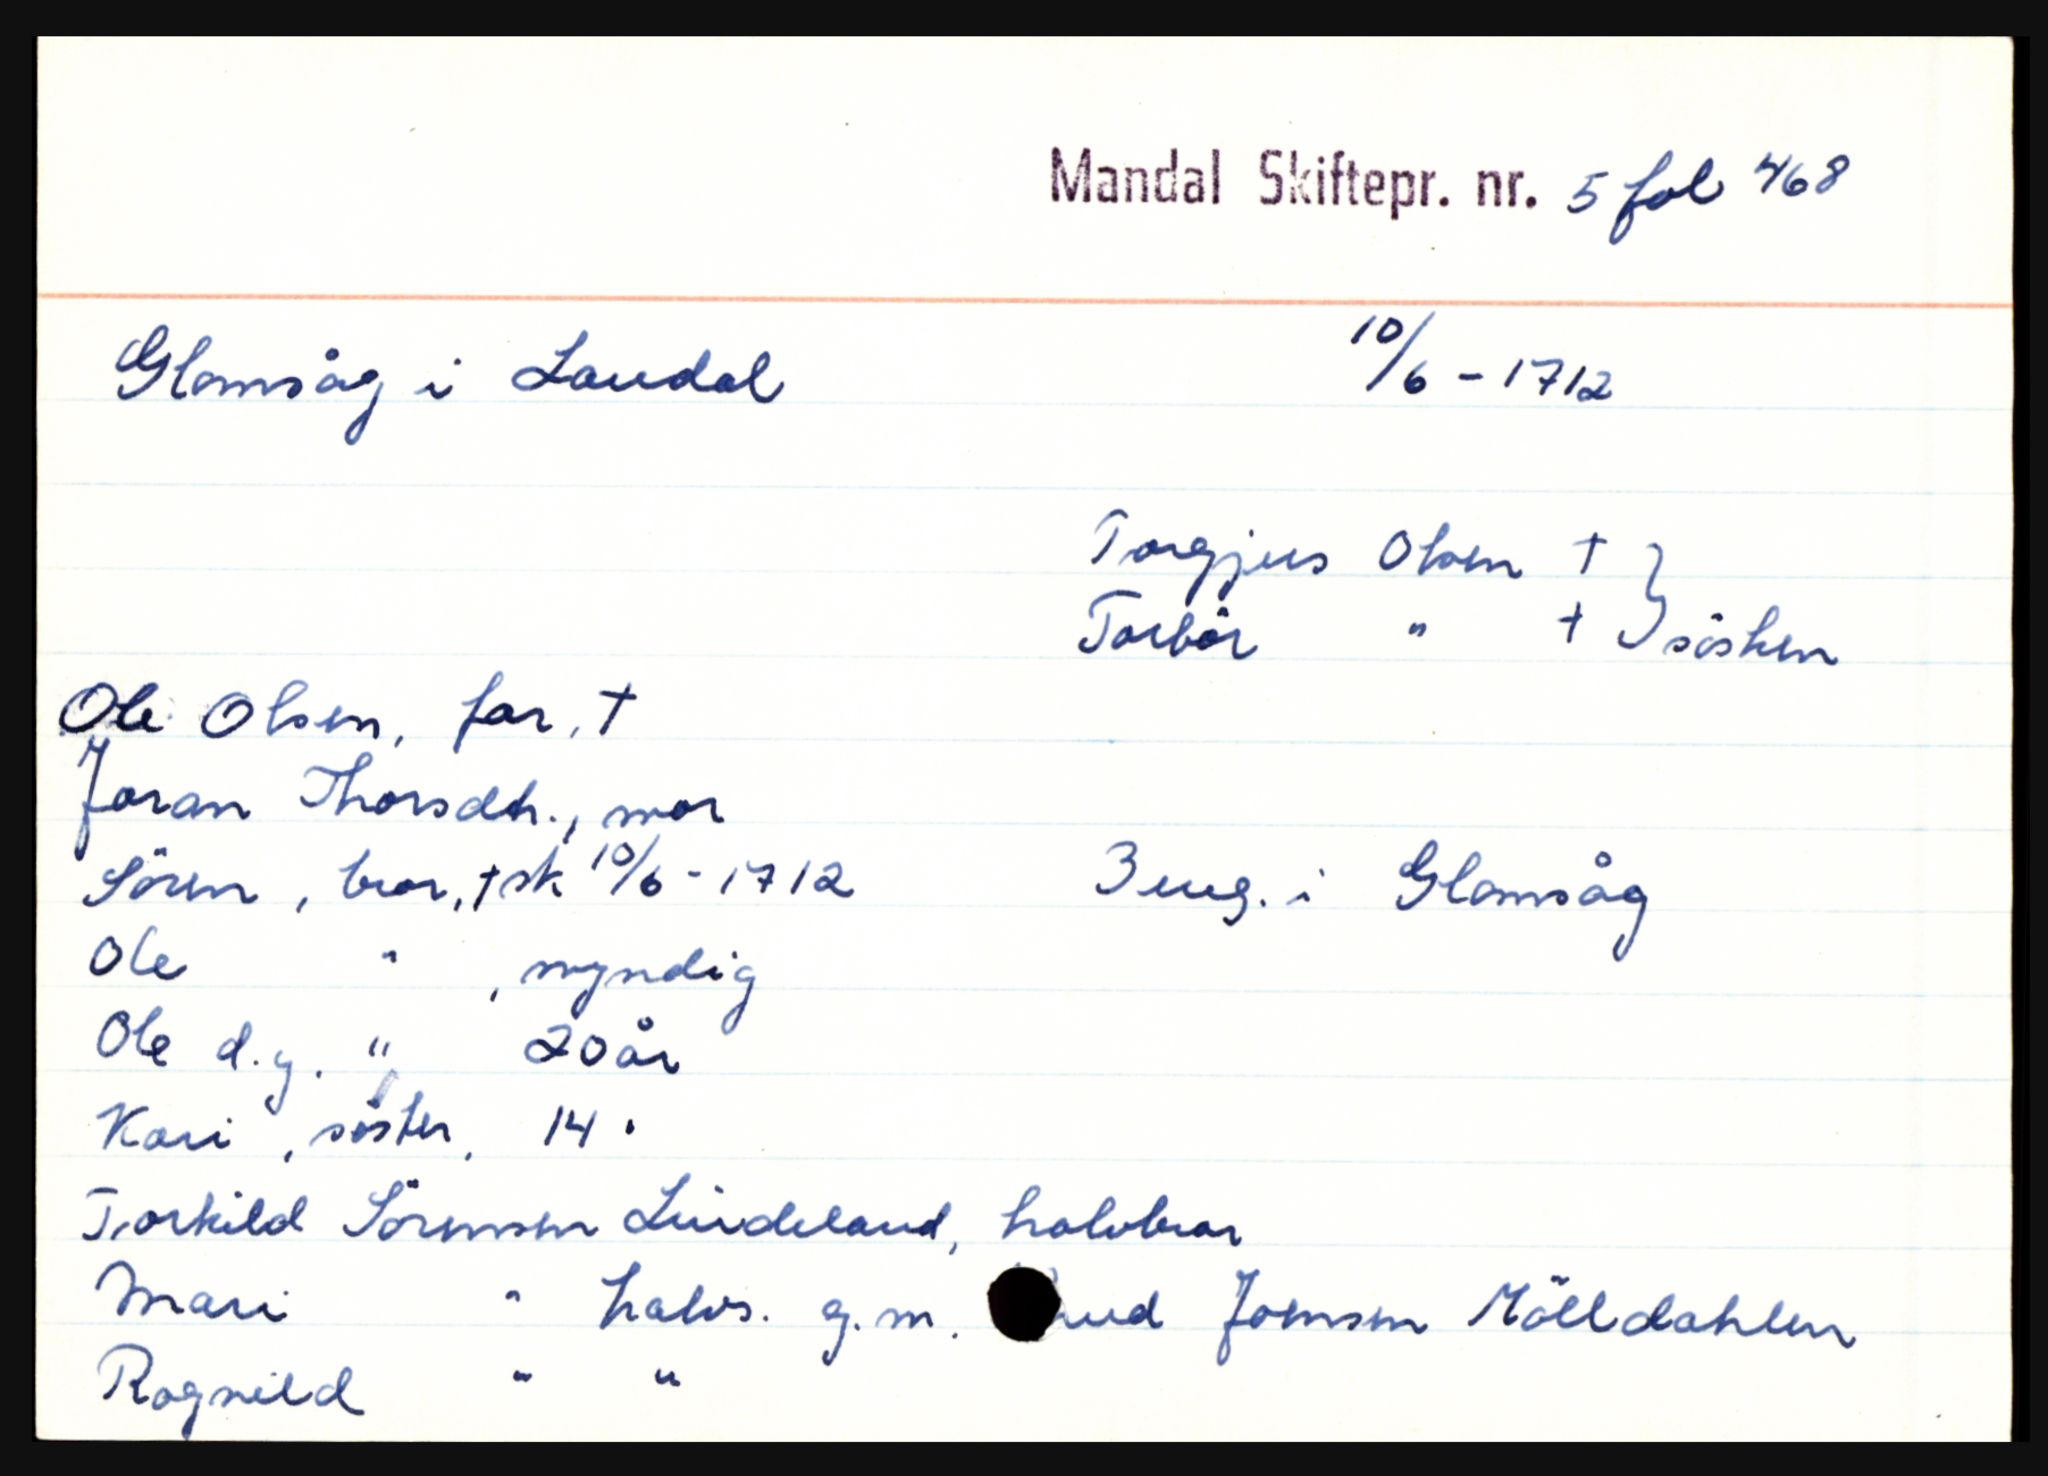 Mandal Skiftepr. nr. 5 fol 468
Glomsåg i Laudal 10/6 - 1712
Torgjus Olsen †
Torbör " † } sösken
Ole Olsen, far, †
Joran Thorsdh., mor
Sören, bror, † sk 10/6 - 1712 3 eng. i Glomsåg
Ole " , myndig
Ole d.y. " 20 år
Kari , söster, 14 "
Torkild Sörensen Lindeland, halvbror
Mari " halvs. g.m. Joensen Mölldahlen
Rognild " "